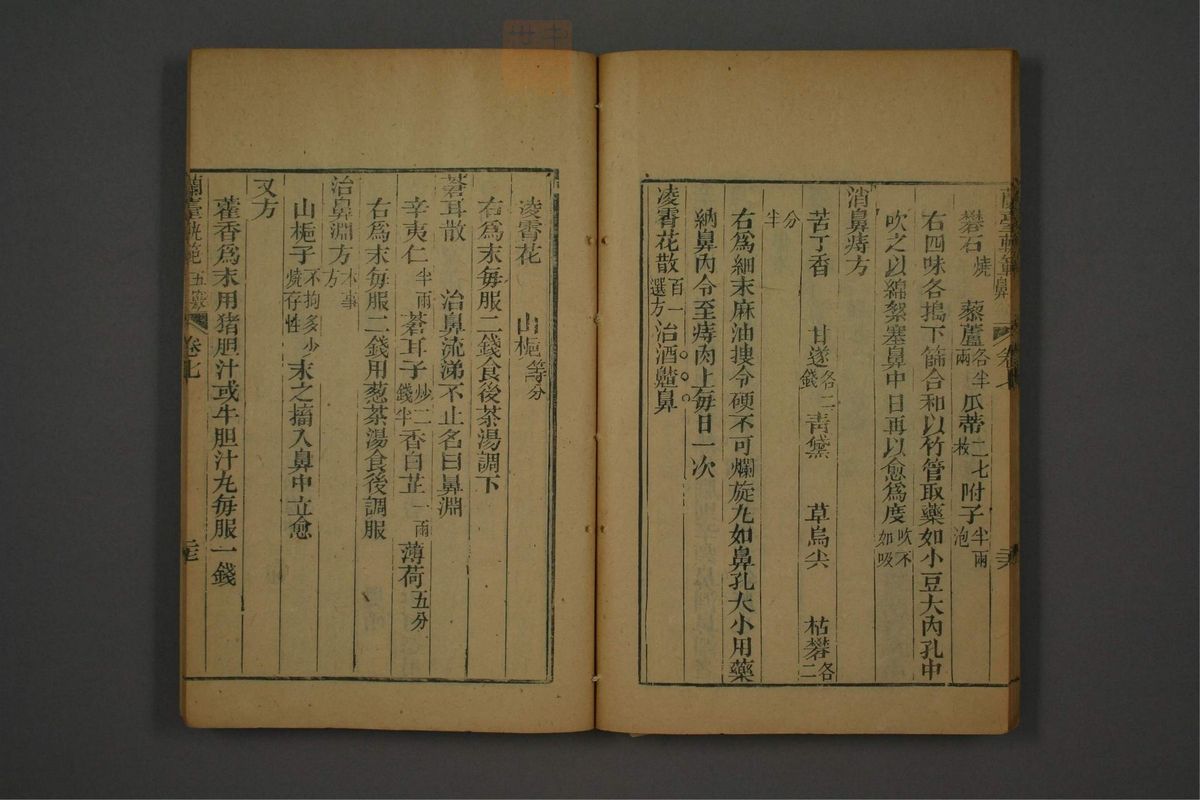 蘭臺軌範 鼻 卷七 二六
礬石燒 藜蘆各半兩 瓜蒂二七枚 附子半兩泡
右四味各搗下篩合和以竹管取藥如小豆大內孔中
吹之以綿絮塞鼻中日再以愈爲度吹不如吸
消鼻痔方
苦丁香 甘遂各二錢 青黛 草烏尖 枯礬各二
分半
右爲細末麻油搜令硬不可爛旋丸如鼻孔大小用藥
納鼻內令至痔肉上每日一次
凌霄花散百一選方 治酒齄鼻
凌霄花 山梔等分
右爲末每服二錢食後茶湯調下
蒼耳散 治鼻流涕不止名曰鼻淵
辛夷仁半兩 蒼耳子炒二錢半 香白芷一兩 薄荷五分
右爲末每服二錢用葱茶湯食後調服
治鼻淵方本事方
山梔子不拘多少燒存性 末之搐入鼻中立愈
又方
藿香爲末用猪胆汁或牛胆汁丸每服一錢
蘭臺軌範 卷七 二七